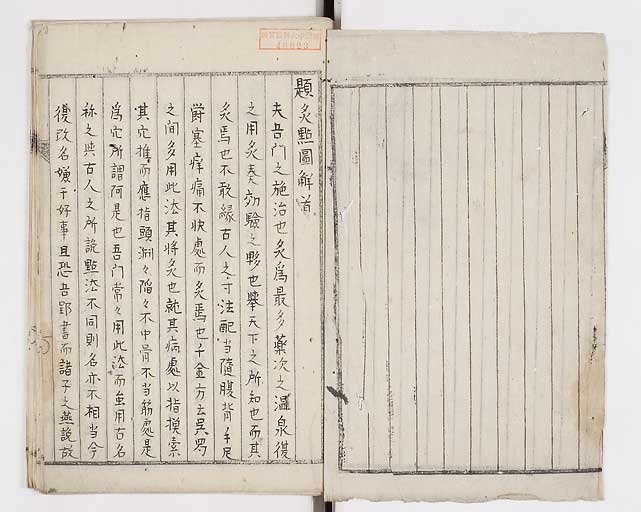 題灸點圖解首
夫吾門之施治也灸爲最多藥次之溫泉復
之用灸奏効驗之夥也舉天下之所知也而其
灸焉也不敢緣古人之寸法配當隨腹背手足
欝塞痒痛不快處而灸焉也千金方云吳蜀
之間多用此法其將灸也就其病處以指摸索
其穴推而應指頭洞々陷々不中骨不當筋處是
爲穴所謂阿是也吾門常々用此法而無用古名
称之與古人之所說點法不同則名亦不相當今
復改名嫌于好事且恐吾郢書而諸子之燕說故
46623